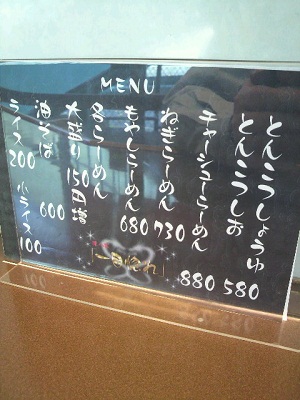 MENU
とんこつしょうゆ
とんこつしお
580
チャーシューらーめん
880
ねぎらーめん
730
もやしらーめん
680
各らーめん
大盛り150円増
油そば
600
ライス
200
小ライス
100